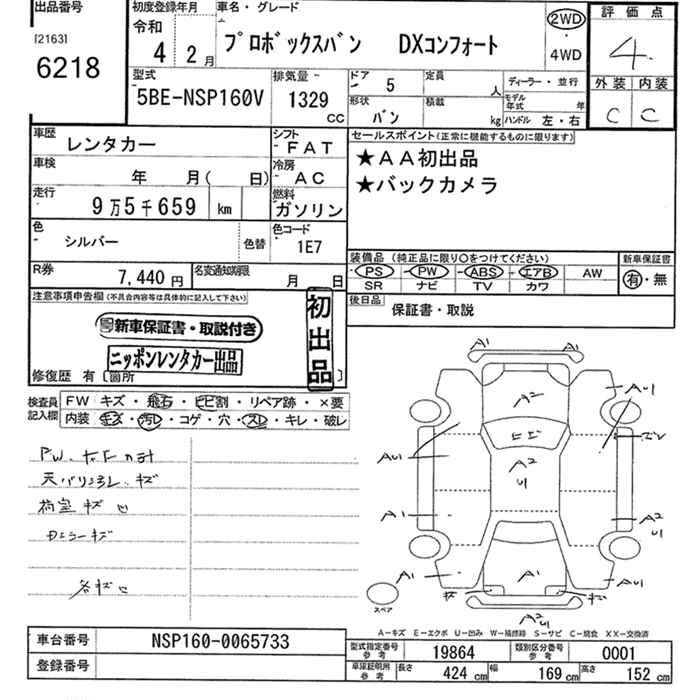 出品番号
[2163]
6218
初度登録年月
令和
4 2月
車名・グレード
プロボックスバン DXコンフォート
2WD
4WD
評価点
4
外装 内装
C C
型式
5BE-NSP160V
排気量
1329
CC
ドア 5
形状 バン
定員 人
積載 kg
ディーラー・並行
モデル年式 年
ハンドル 左・右
車歴 レンタカー
車検 年 月( 日)
走行
9万5千659 km
色 シルバー
色替
シフト FAT
冷房 AC
燃料 ガソリン
色コード
1E7
セールスポイント(正常に機能するものに限ります)
★AA初出品
★バックカメラ
装備品 (純正品に限り〇をつけてください)
PS PW ABS エアB AW
SR ナビ TV カワ
新車保証書
有・無
R券 7,440円
名変通知期限 月 日
後日品 保証書・取説
注意事項申告欄(不具合内容等は具体的に記入して下さい)
新車保証書・取説付き
ニッポンレンタカー出品
初出品
修復歴 有 [箇所 ]
検査員記入欄
FW キズ・飛石・ヒビ割・リペア跡・×要
内装 キズ・汚レ・コゲ・穴・スレ・キレ・破レ
天バリヨゴレ、キズ
荷室 キズ 凹
カエラーキズ
各キズ凹
A1 A1
A2
ヒビ
A2
U1
AU1
AU1
A1
A2
U1
A1
A1
AU1
A2
U1
スペア
A-キズ E-エクボ U-凹み W-補修跡 S-サビ C-腐食 XX-交換済
車台番号 NSP160-0065733
登録番号
型式指定番号 参考 19864
類別区分番号 参考 0001
車庫証明用 参考
長さ 424 cm
幅 169 cm
高さ 152 cm